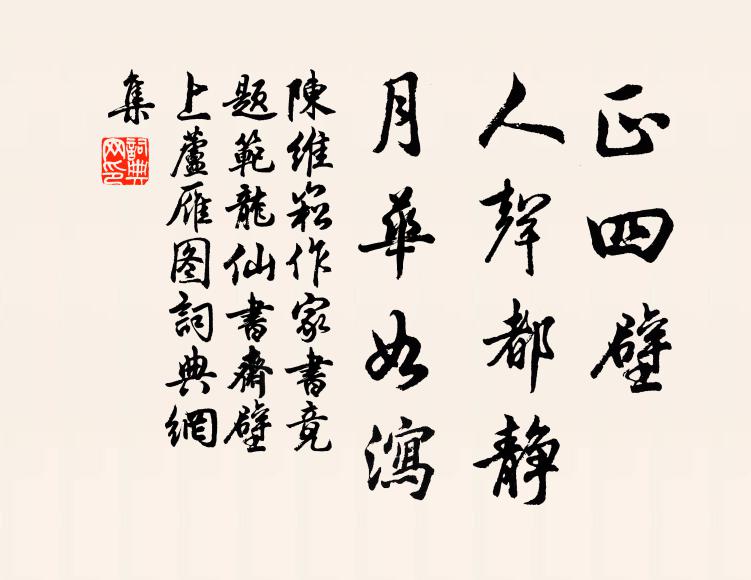 正四壁
人聲都靜
月華如瀉
陳維崧作家書竟
題範龍仙書齋壁
上蘆雁图詞典網
集
詞典
网印